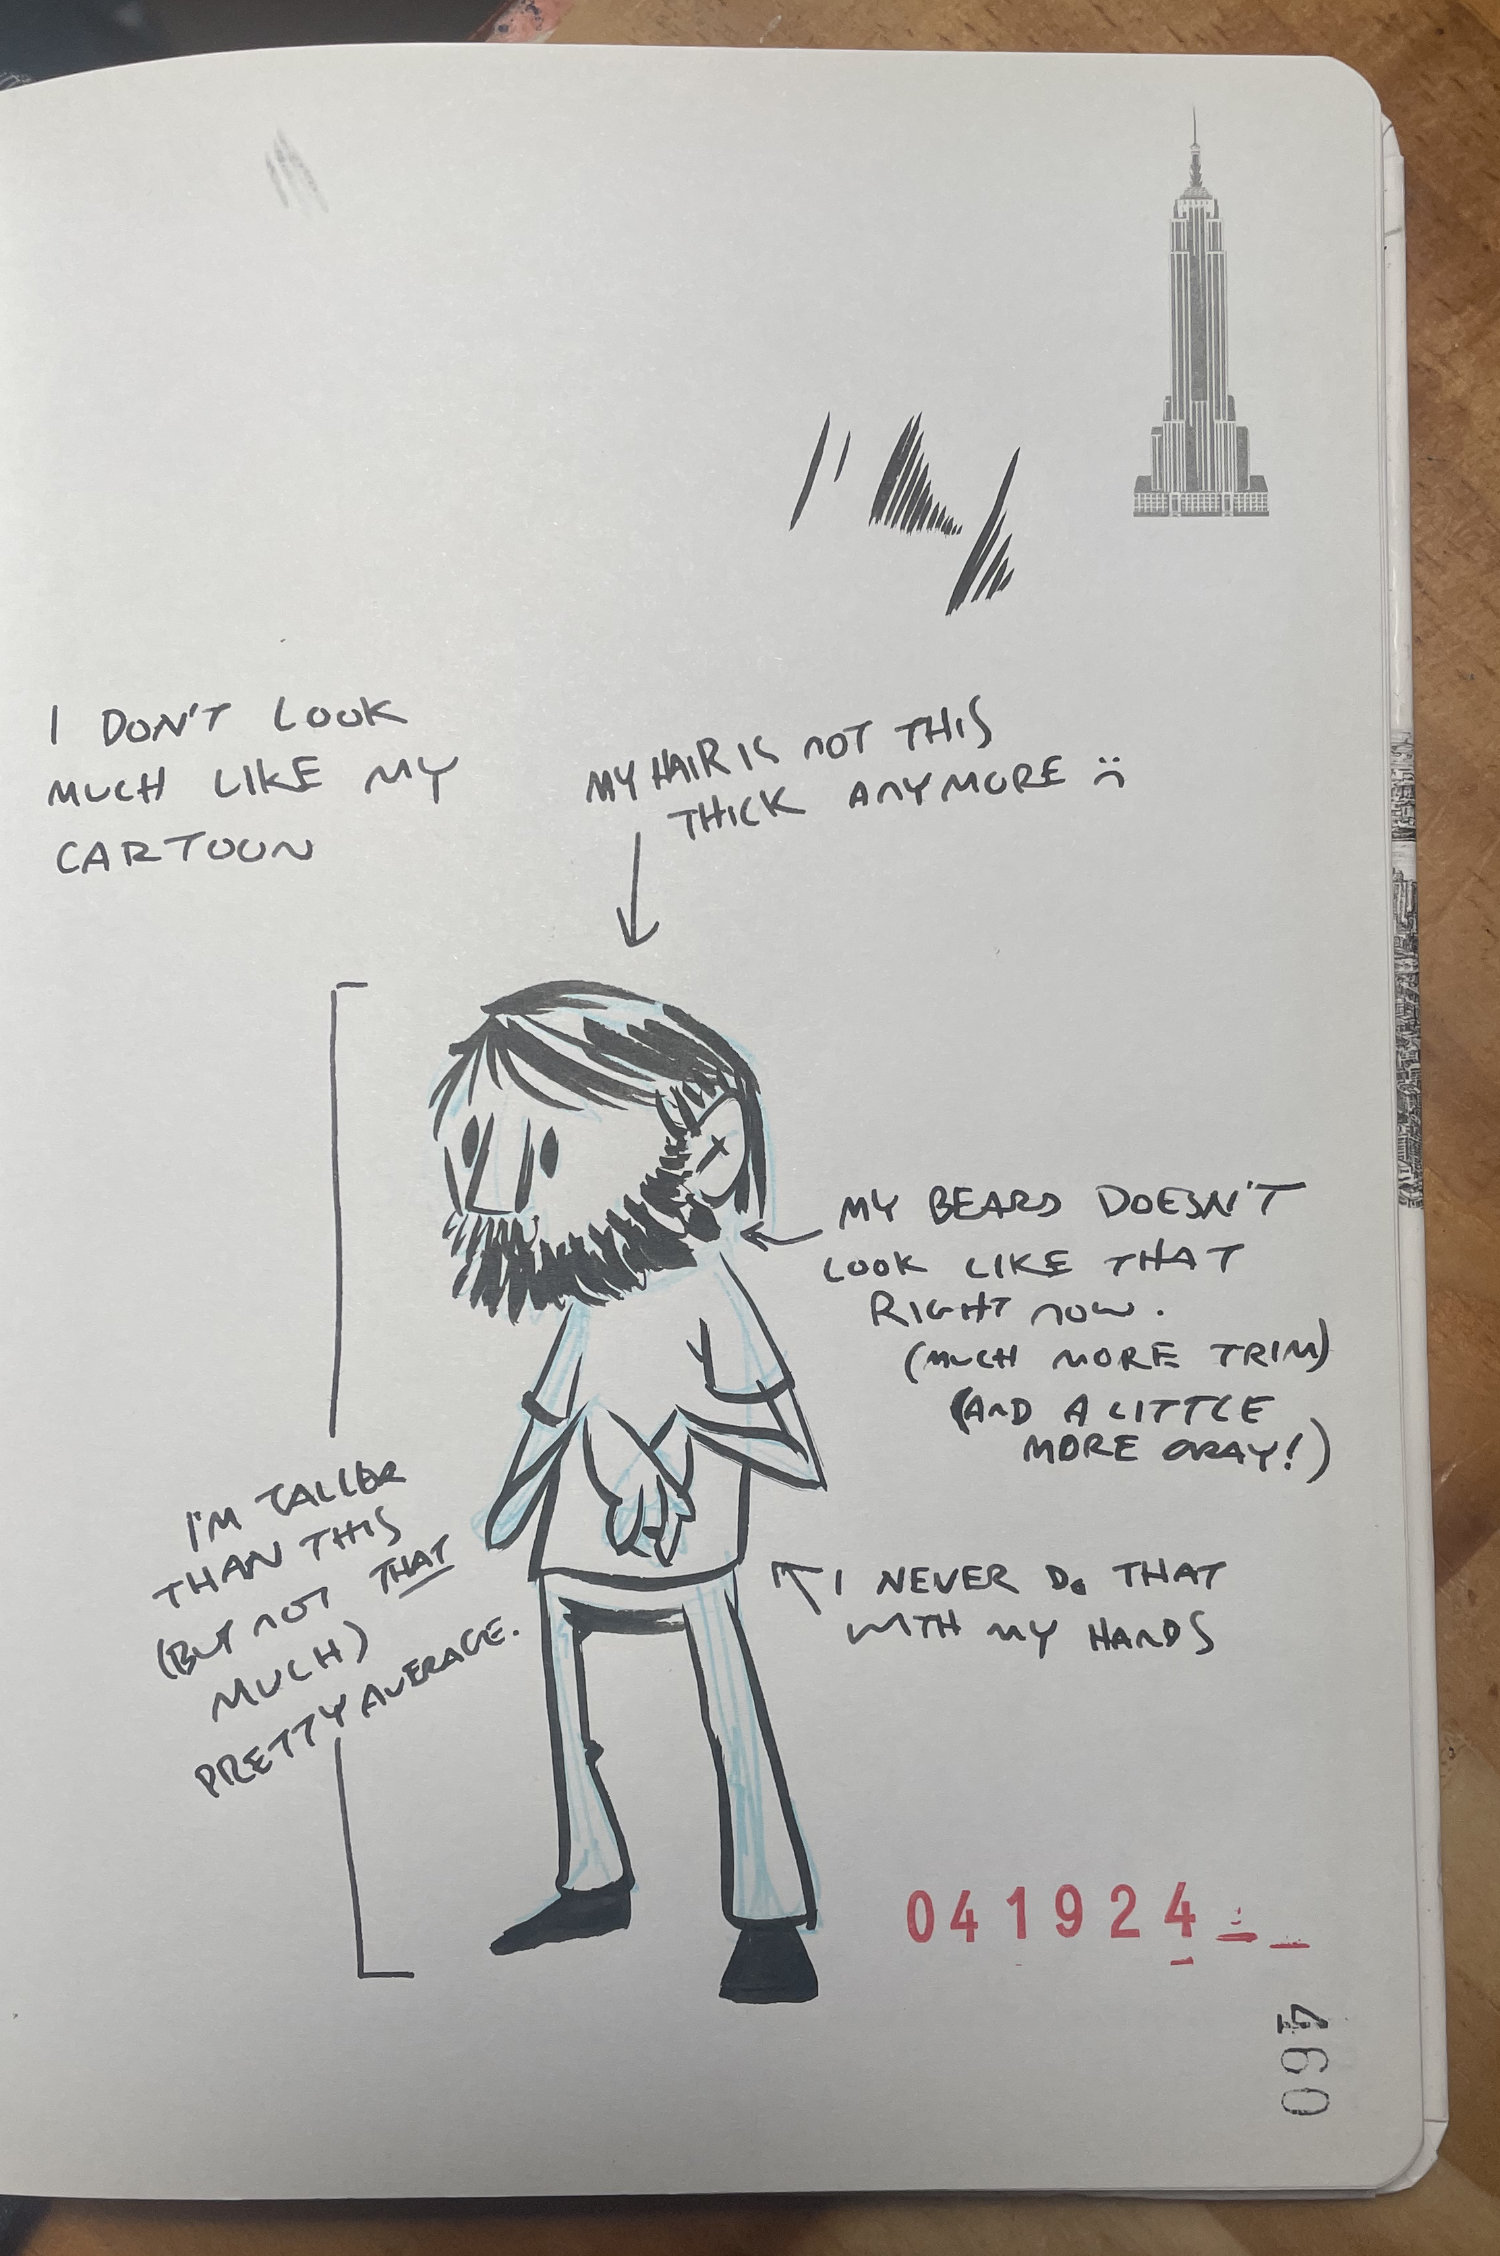 I DON'T LOOK
MUCH LIKE MY
CARTOON
MY HAIR IS NOT THIS
THICK ANYMORE :(
MY BEARD DOESN'T
LOOK LIKE THAT
RIGHT NOW.
(MUCH MORE TRIM)
(AND A LITTLE
MORE GRAY!)
I'M TALLER
THAN THIS
(BUT NOT THAT
MUCH)
PRETTY AVERAGE.
I NEVER DO THAT
WITH MY HANDS
041924
460